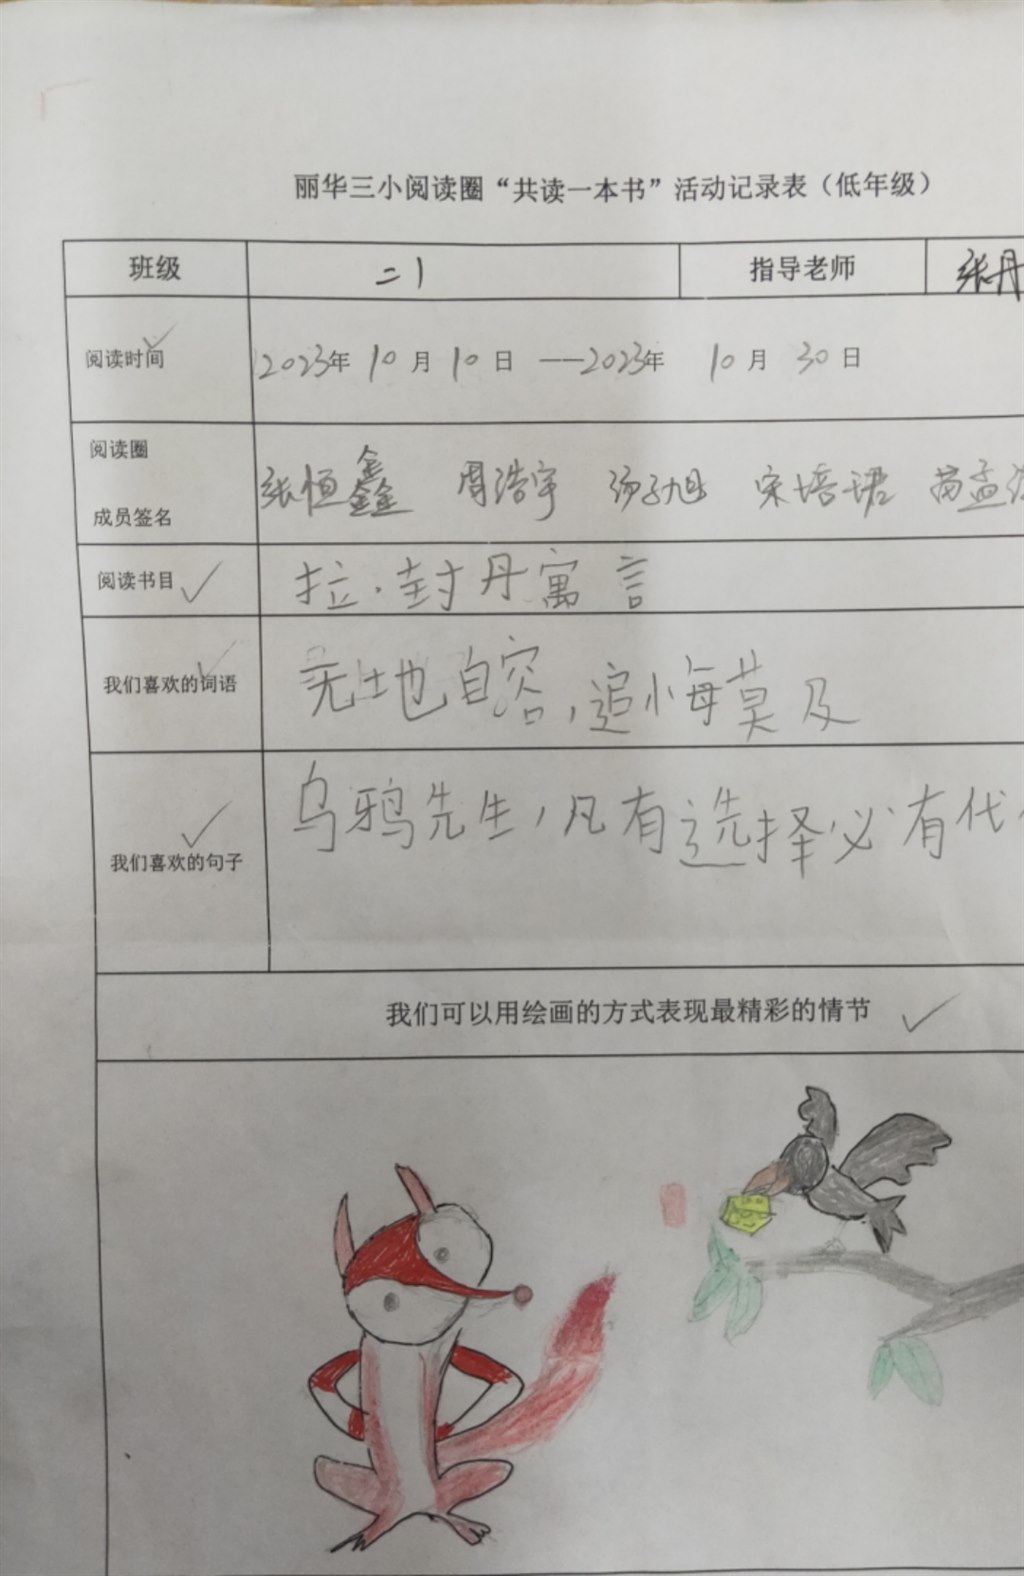 丽华三小阅读圈“共读一本书”活动记录表（低年级）
班级 二1 指导老师 张丹
阅读时间 2023年 10月 10日 —2023年 10月 30日
阅读圈
张恒鑫 周浩宇 汤子旭 宋培珺 苗孟
成员签名
阅读书目 拉·封丹寓言
我们喜欢的词语 无地自容，追悔莫及
乌鸦先生，凡有选择必有代
我们喜欢的句子
我们可以用绘画的方式表现最精彩的情节